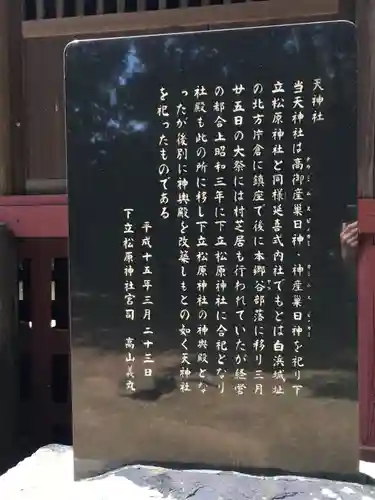 天神社
当天神社は高御産巣日神、神産巣日神を祀り下
立松原神社と同様延喜式内社でもとは白浜城址
の北方片倉に鎮座で後に本郷谷部落に移り三月
廿五日の大祭には村芝居も行われていたが経営
の都合上昭和三年に下立松原神社に合祀となり
社殿も此の所に移し下立松原神社の神輿殿とな
ったが後別に神輿殿を改築しもとの如く天神社
を祀ったものである
平成十五年三月二十三日
下立松原神社宮司 高山義丸